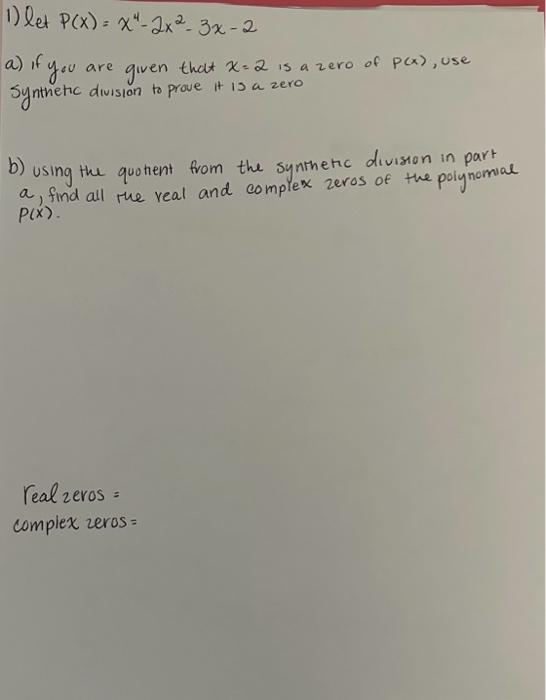 1) let P(x) = x⁴ - 2x² - 3x - 2
a) if you are given that x = 2 is a zero of p(x), use
synthetic division to prove it is a zero
b) using the quotient from the synthetic division in part
a, find all the real and complex zeros of the polynomial
P(x).
real zeros =
complex zeros =